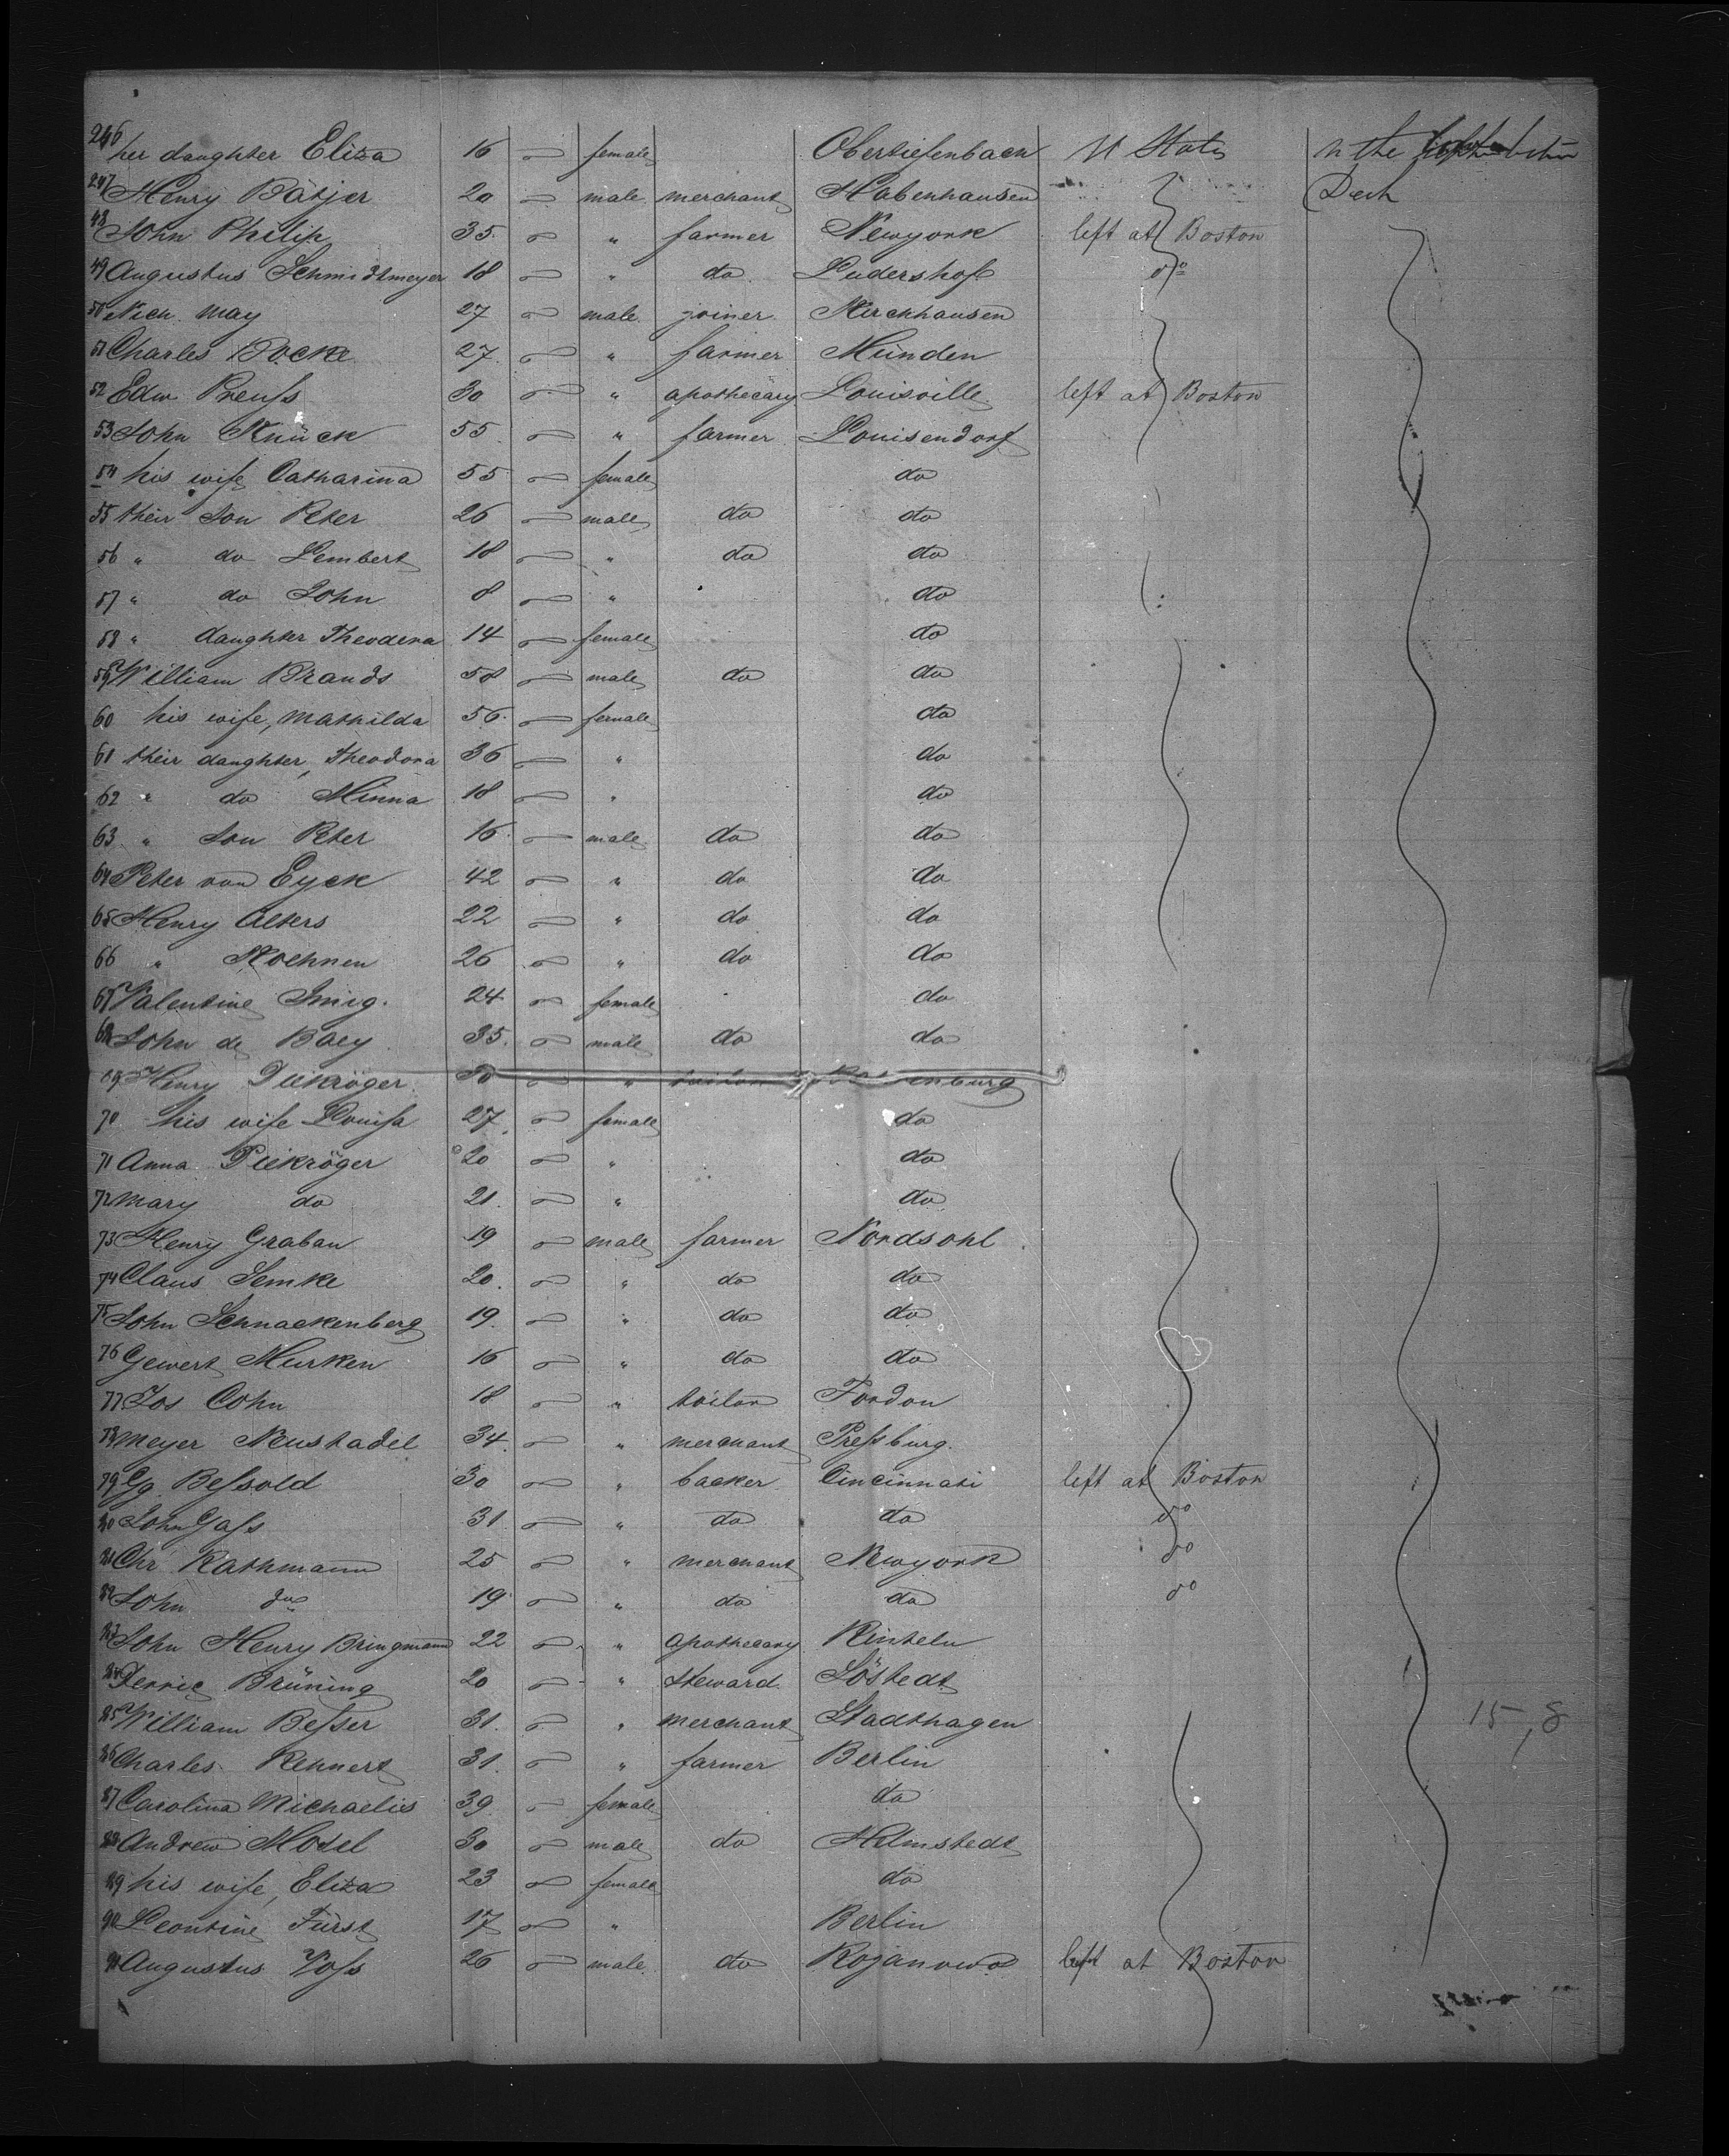 246 her daughter Eliza 16 female Obertiefenbach U States in the between
247 Henry Bätjer 20 male merchant Habenhausen Deck
48 John Philip 35 " farmer Newyork left at Boston
49 Augustus Schmidtmeyer 18 " do Ludershof do
50 Nich. May 27 male joiner Kirchhausen
51 Charles Bocke 27 " farmer Münden
52 Edw Preuſs 30 " apothecary Louisville left at Boston
53 John Knück 55 " farmer Louisendorf
54 his wife Catharina 55 female do
55 their Son Peter 26 male do do
56 " do Lembert 18 " do do
57 " do John 8 " do
58 " daughter Theodera 14 female do
59 William Brands 58 male do do
60 his wife, Mathilda 56 female do
61 their daughter, Theodora 36 " do
62 " do Minna 18 " do
63 " Son Peter 16 male do do
64 Peter van Eyck 42 " do do
65 Henry Alters 22 " do do
66 " Koehnen 26 " do do
67 Valentine Imig. 24 female do
68 John de Baey 35 male do do
69 Henry Piekröger 30 "
70 his wife Louiſa 27 female do
71 Anna Piekröger 20 " do
72 Mary do 21 " do
73 Henry Graban 19 male farmer Nordsohl
74 Claus Semke 20 " do do
75 John Schnackenberg 19 " do do
76 Gewert Murken 16 " do do
77 Jos Cohn 18 " tailor Fordon
78 Meyer Neustadel 34 " merchant Preſsburg.
79 Gg. Beſsold 30 " backer Cincinnati left at Boston
80 John Gaſs 31 " do do do
81 Chr Rathmann 25 " merchant Newyork do
82 John do 19 " do do do
83 John Henry Bringmann 22 " apothecary Rinteln
84 Derric Brüning 20 " steward Löstedt
85 William Beſser 31 " merchant Stadthagen 15,8
86 Charles Rehnert 31 " farmer Berlin
87 Carolina Michaelis 39 female do
88 Andrew Mosel 30 male do Helmstedt
89 his wife, Eliza 23 female do
90 Leontine Fürst 17 " Berlin
91 Augustus Voſs 26 male do Rojanowo left at Boston